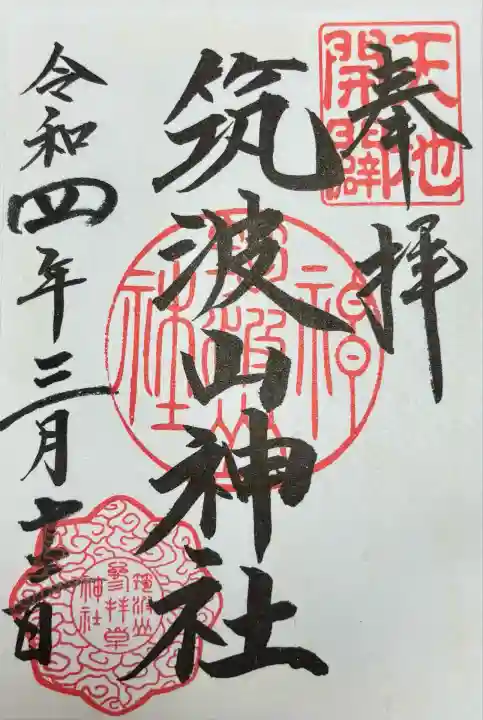 奉拝
天地
開闢
筑波山神社
令和四年三月十三日
筑波山
参拝章
神社